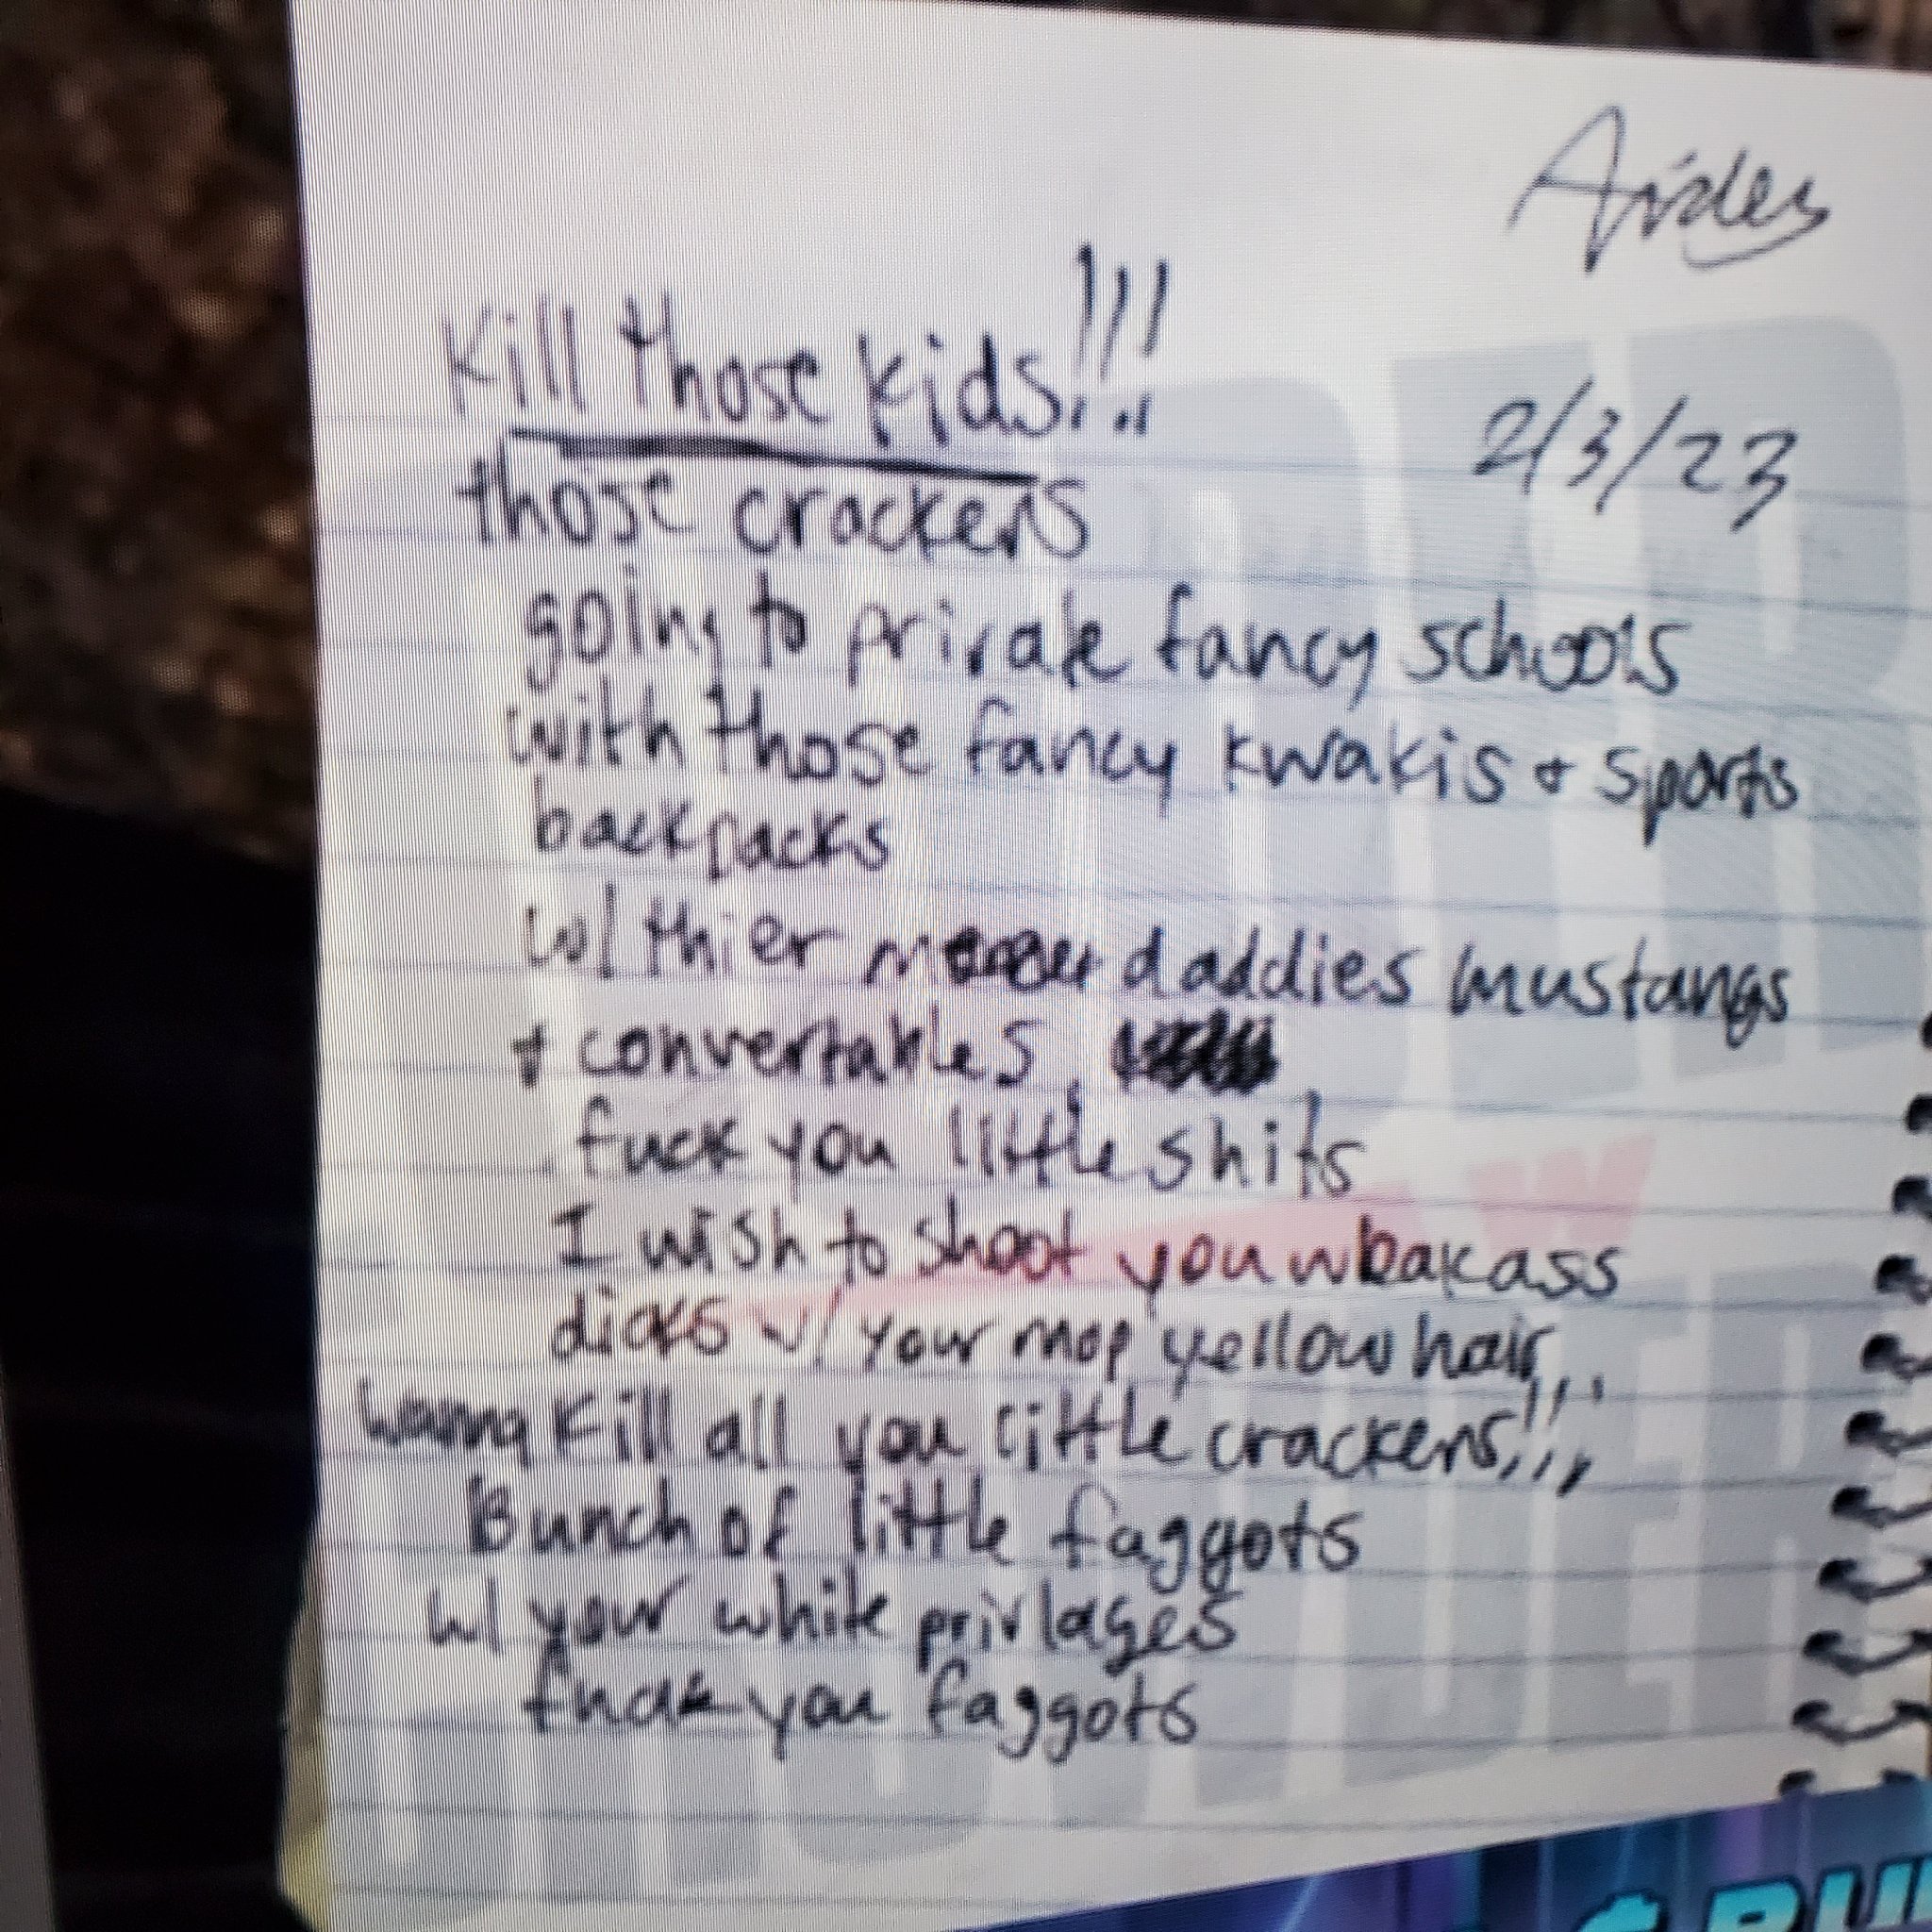 Aiden
Kill those kids!!!
2/3/23
those crackers
going to private fancy schools
with those fancy kwakis + sports
backpacks
w/ thier daddies mustangs
+ convertables,
fuck you little shits
I wish to shoot you weakass
dicks w/ your mop yellow hair,
wanna kill all you little crackers!!!
Bunch of little faggots
w/ your white privlages
fuck you faggots